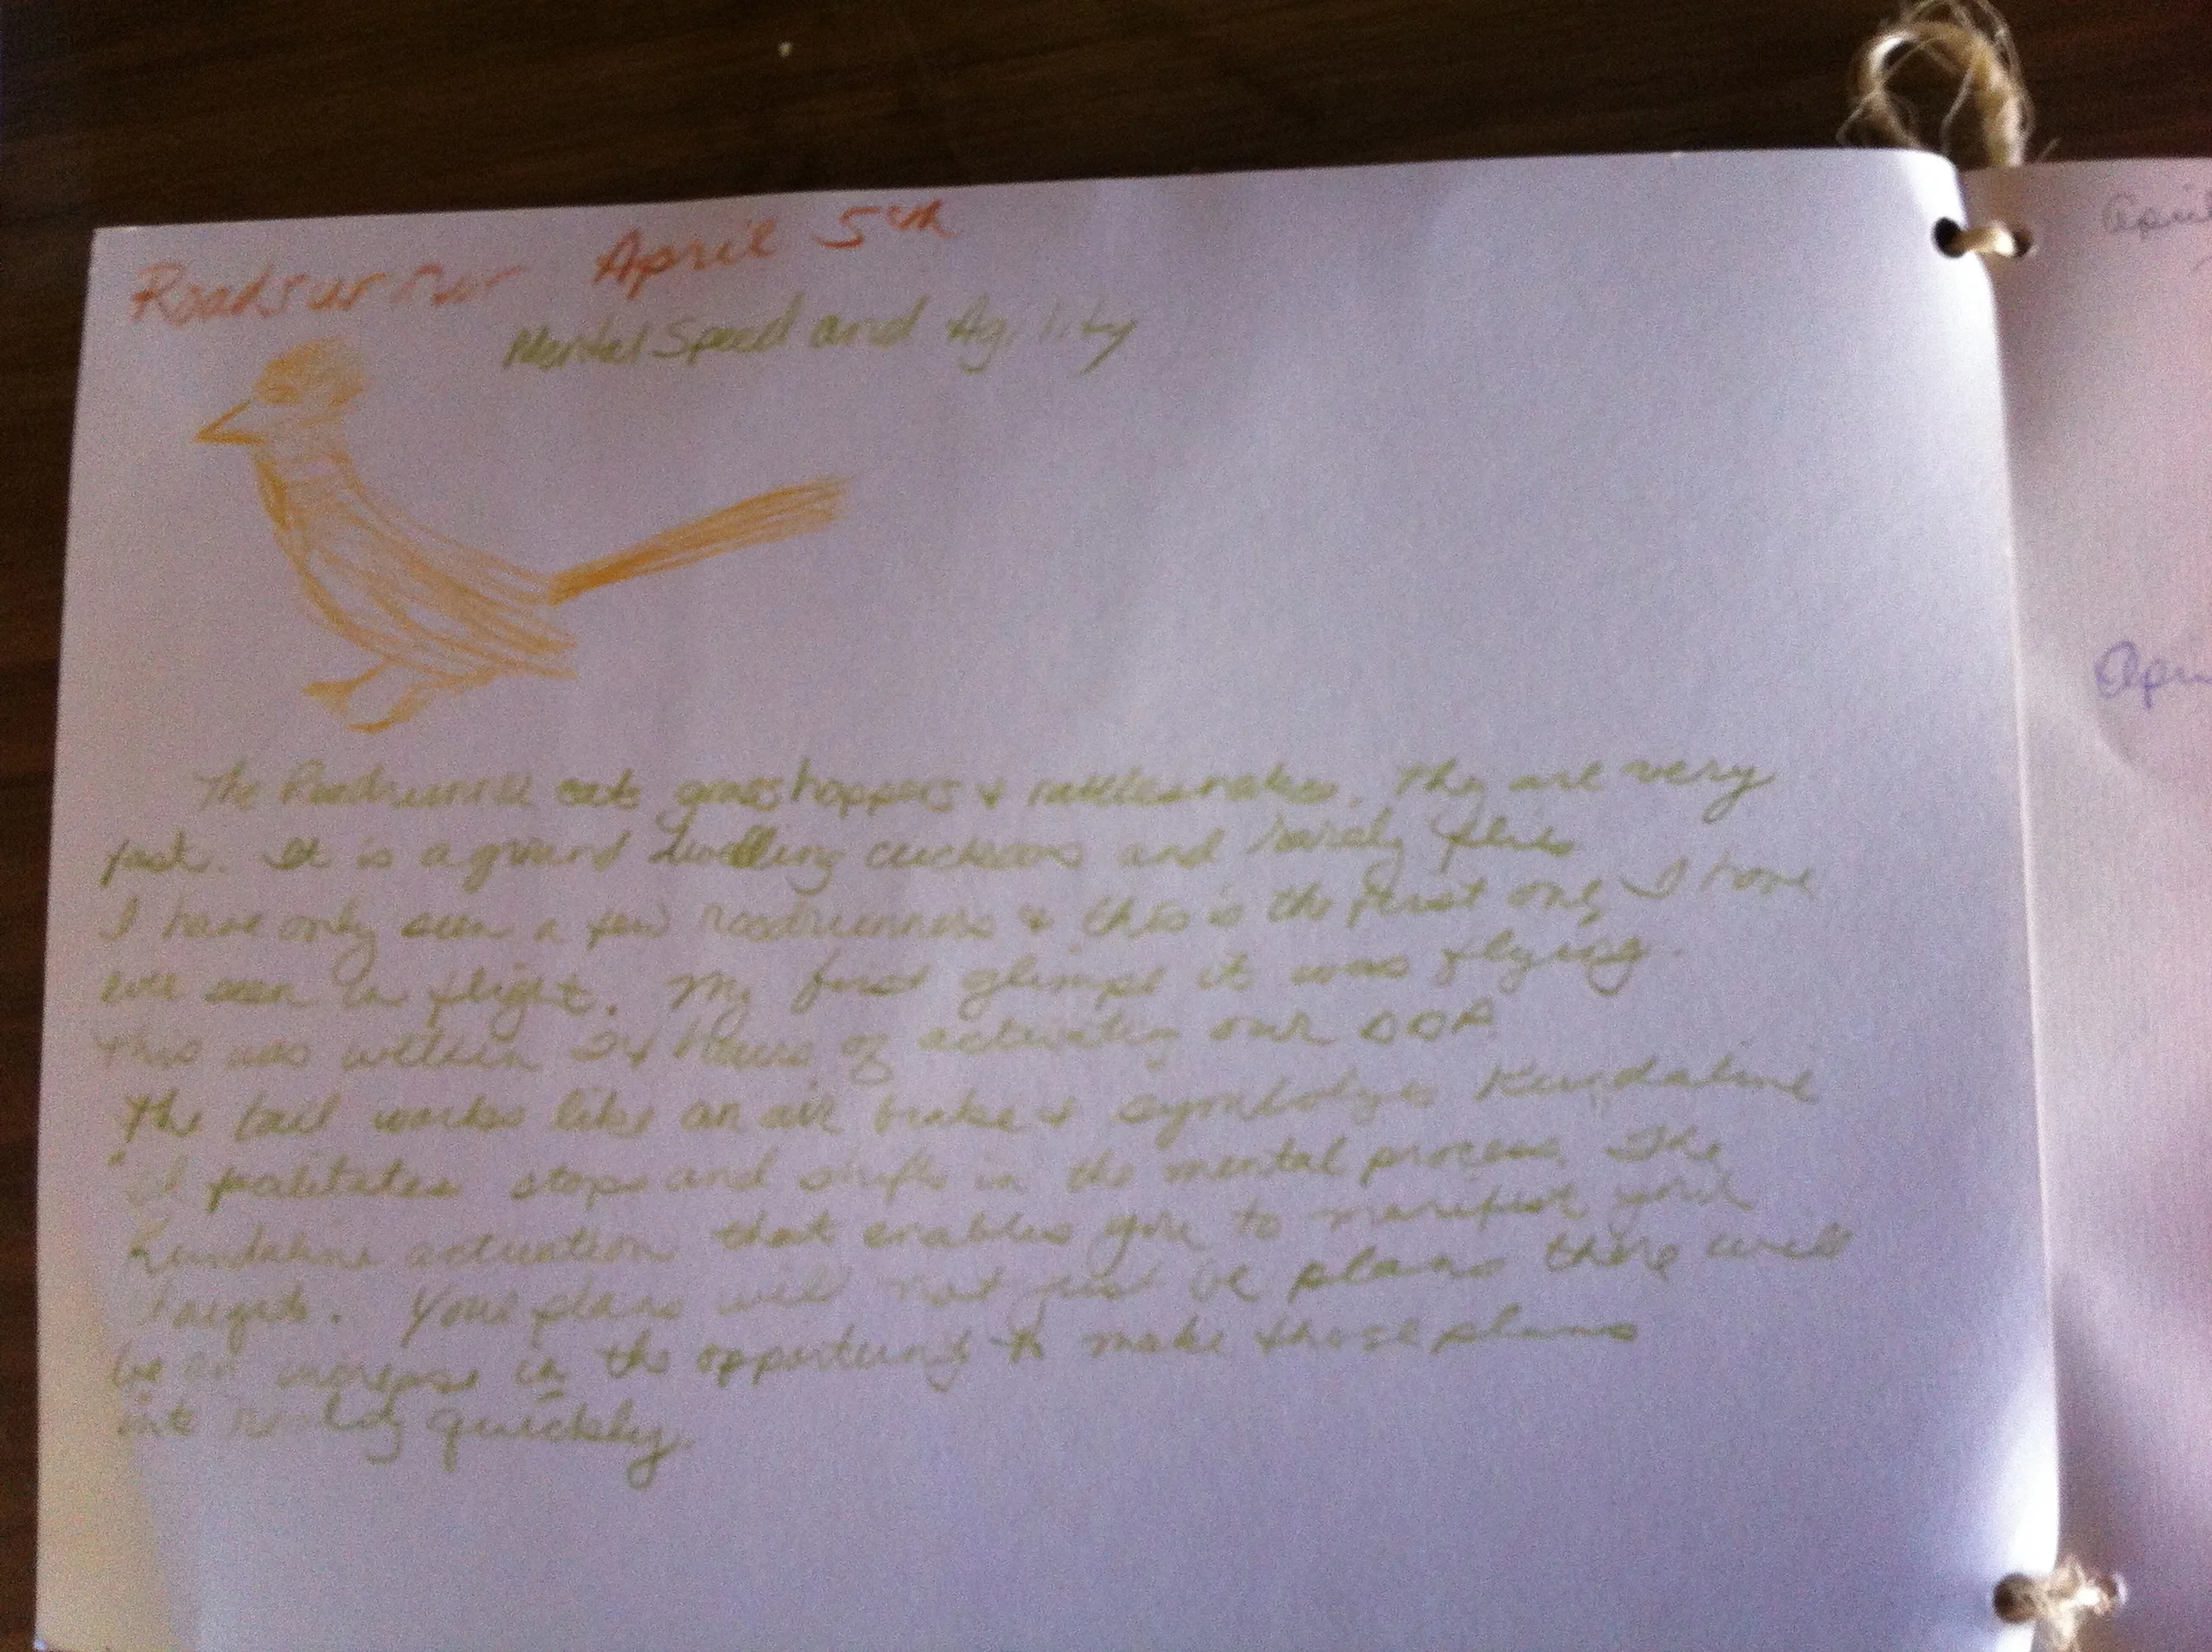 Roadrunner April 5th
Mental Speed and Agility
The Roadrunner eats grasshoppers & rattlesnakes. They are very
fast. It is a ground dwelling cuckoos and rarely flies
I have only seen a few roadrunners & this is the first one I have
ever seen in flight. My first glimpse it was flying.
This was within 24 hours of activating our DOA.
The tail works like an air brake & symbolyzes Kundaline
"It facilitates stops and shifts in the mental process. The
Kundaline activation that enables you to manifest your
targets. Your plans will not just be plans there will
be an increase in the opportunity to make those plans
into reality quickly.
April
Apri